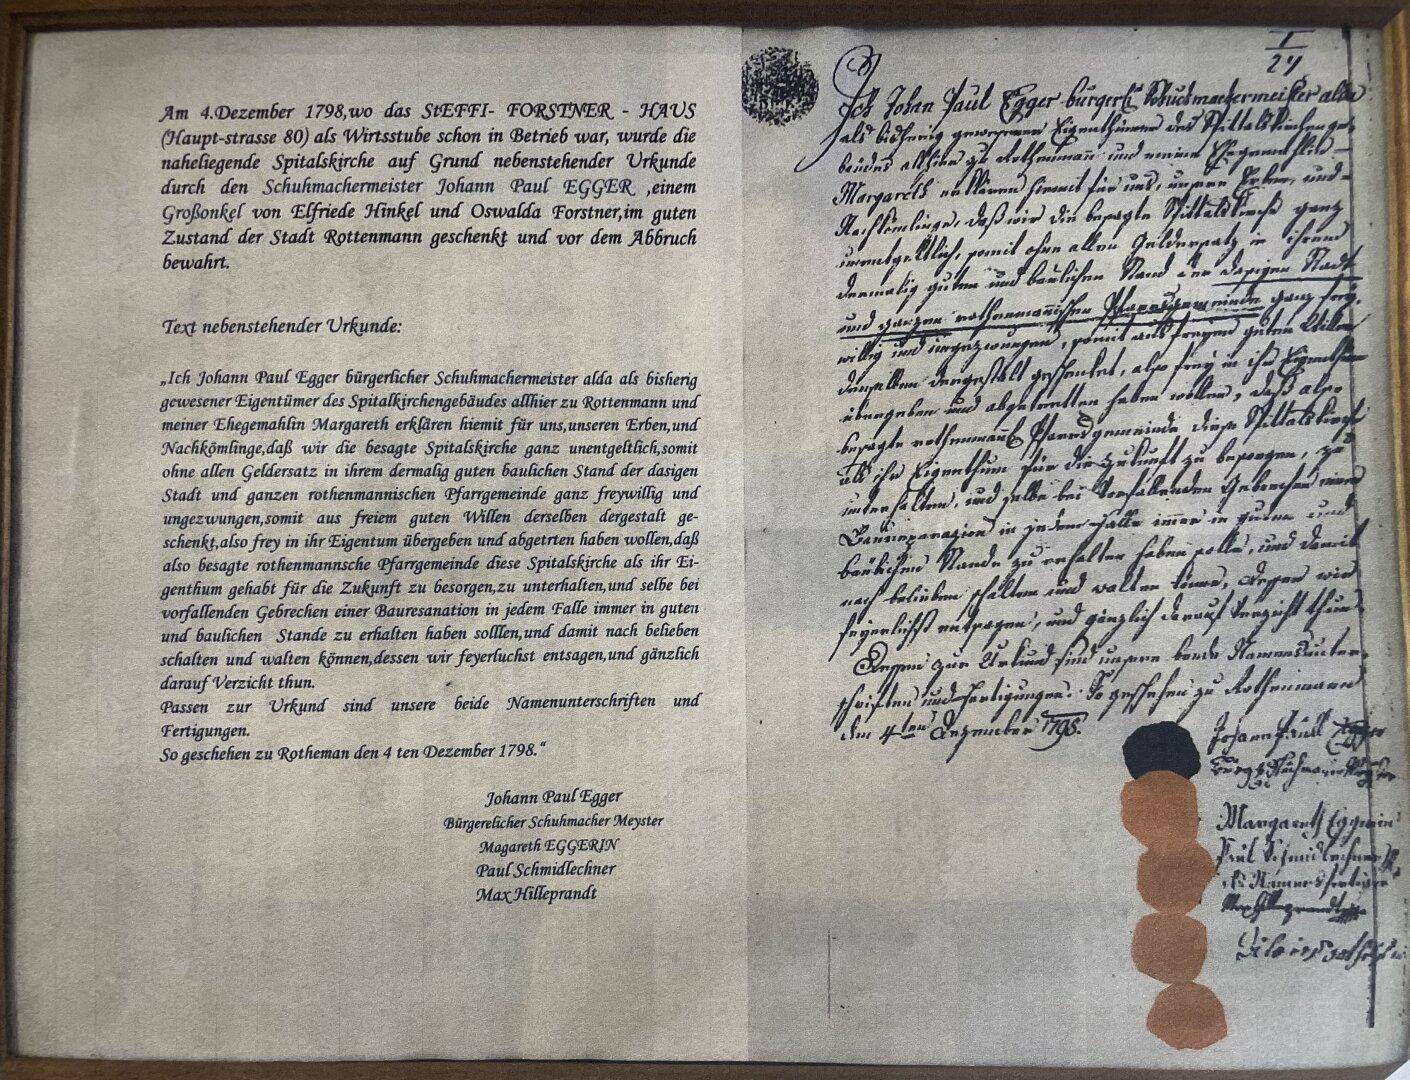 Am 4.Dezember 1798,wo das StEFFI- FORSTNER - HAUS
(Haupt-strasse 80) als Wirtsstube schon in Betrieb war, wurde die
naheliegende Spitalskirche auf Grund nebenstehender Urkunde
durch den Schuhmachermeister Johann Paul EGGER ,einem
Großonkel von Elfriede Hinkel und Oswalda Forstner,im guten
Zustand der Stadt Rottenmann geschenkt und vor dem Abbruch
bewahrt.
Text nebenstehender Urkunde:
„Ich Johann Paul Egger bürgerlicher Schuhmachermeister alda als bisherig
gewesener Eigentümer des Spitalkirchengebäudes allhier zu Rottenmann und
meiner Ehegemahlin Margareth erklären hiemit für uns,unseren Erben,und
Nachkömlinge,daß wir die besagte Spitalskirche ganz unentgeltlich,somit
ohne allen Geldersatz in ihrem dermalig guten baulichen Stand der dasigen
Stadt und ganzen rothenmannischen Pfarrgemeinde ganz freywillig und
ungezwungen,somit aus freiem guten Willen derselben dergestalt ge-
schenkt,also frey in ihr Eigentum übergeben und abgetrten haben wollen,daß
also besagte rothenmannsche Pfarrgemeinde diese Spitalskirche als ihr Ei-
genthum gehabt für die Zukunft zu besorgen,zu unterhalten,und selbe bei
vorfallenden Gebrechen einer Bauresanation in jedem Falle immer in guten
und baulichen Stande zu erhalten haben solllen,und damit nach belieben
schalten und walten können,dessen wir feyerluchst entsagen,und gänzlich
darauf Verzicht thun.
Passen zur Urkund sind unsere beide Namenunterschriften und
Fertigungen.
So geschehen zu Rotheman den 4 ten Dezember 1798.“
Johann Paul Egger
Bürgerelicher Schuhmacher Meyster
Magareth EGGERIN
Paul Schmidlechner
Max Hilleprandt
I
24
Ich Johan Paul Egger bürgerl Schuchmachermeister alda
als bisherig gewesener Eigenthümer des Spittalskirchenge-
bäudes allhier zu Rothenmann und meine Ehegemahlin
Margareth erklären hiemit für uns, unsere Erben, und
Nachkömlinge, daß wir die besagte Spittalskirche ganz
unentgeltlich, somit ohne allen Geldersatz in ihrem
dermalig guten und baulichen Stand der dasigen Stadt
und ganzen rothenmannischen Pfarrsgemeinde ganz frey-
willig und ungezwungen, somit aus freyem guten Willen
derselben dergestalt geschenket, also frey in ihr Eigenthum
übergeben und abgetretten haben wollen, daß also
besagte rothenmannl Pfarrsgemeinde diese Spittalskirche
als ihr Eigenthum für die Zukunft zu besorgen, zu
unterhalten, und selbe bei vorfallenden Gebrechen einer
Baureparazion in jedem Falle immer in guten und
baulichen Stande zu erhalten haben solle, und damit
nach belieben schalten und walten könne, dessen wir
feyerlichst entsagen, und gänzlich darauf Verzicht thun.
Dessen zur Urkund sind unsere beide Namensunter-
schriften und Fertigungen. So geschehen zu Rothenmann
den 4ten Dezember 1798.
Johann Paull Egger
Margareth Eggerin
Paul Schmidlechner